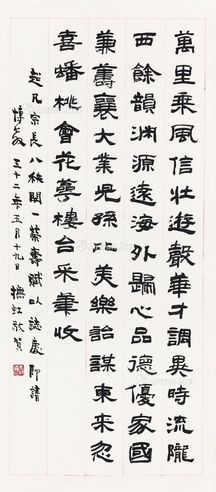 萬里乘風信壯遊聲華才調異時流隴
西餘韻淵源遠海外歸心品德優家國
兼籌襄大業兒孫比美樂詒謀東來忽
喜蟠桃會花萼樓台采筆收
超凡宗長八秩開一榮壽賦以誌慶即請
五十二年五月十九日